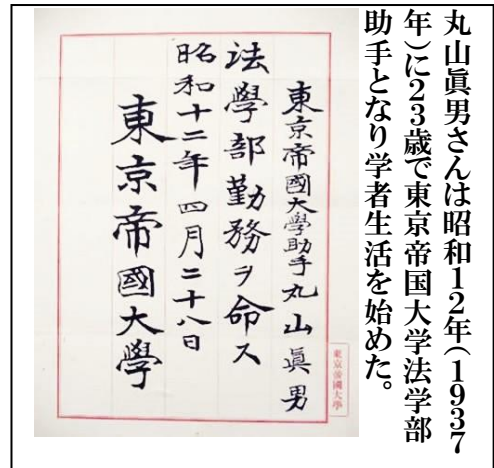 丸山眞男さんは昭和12年(1937
年)に23歳で東京帝国大学法学部
助手となり学者生活を始めた。
東京帝國大學助手丸山眞男
法學部勤務ヲ命ス
昭和十二年四月二十八日
東京帝國大學
東京帝國大學